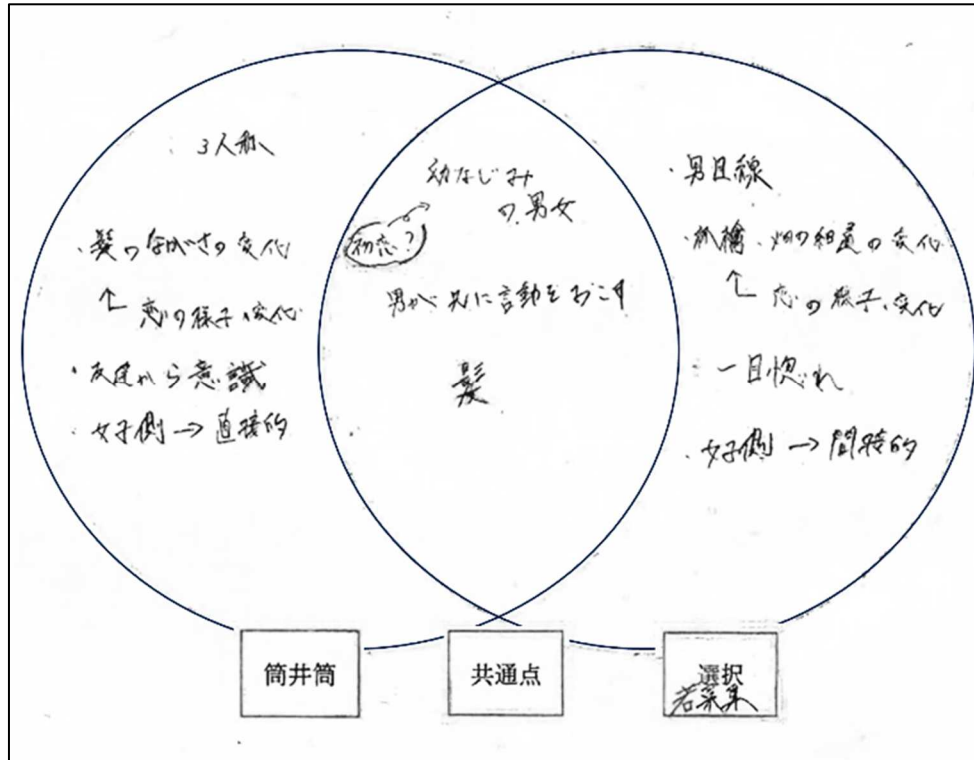 3人称
・髪のながさの変化
↑
恋の様子、変化
・友達から意識
・女子側→直接的
幼なじみ
の男女
初恋?
男が先に言動をおこす
髪
・男目線
・林檎、畑の細道の変化
↑
恋の様子、変化
・一目惚れ
・女子側→間接的
筒井筒
共通点
選択
若菜集